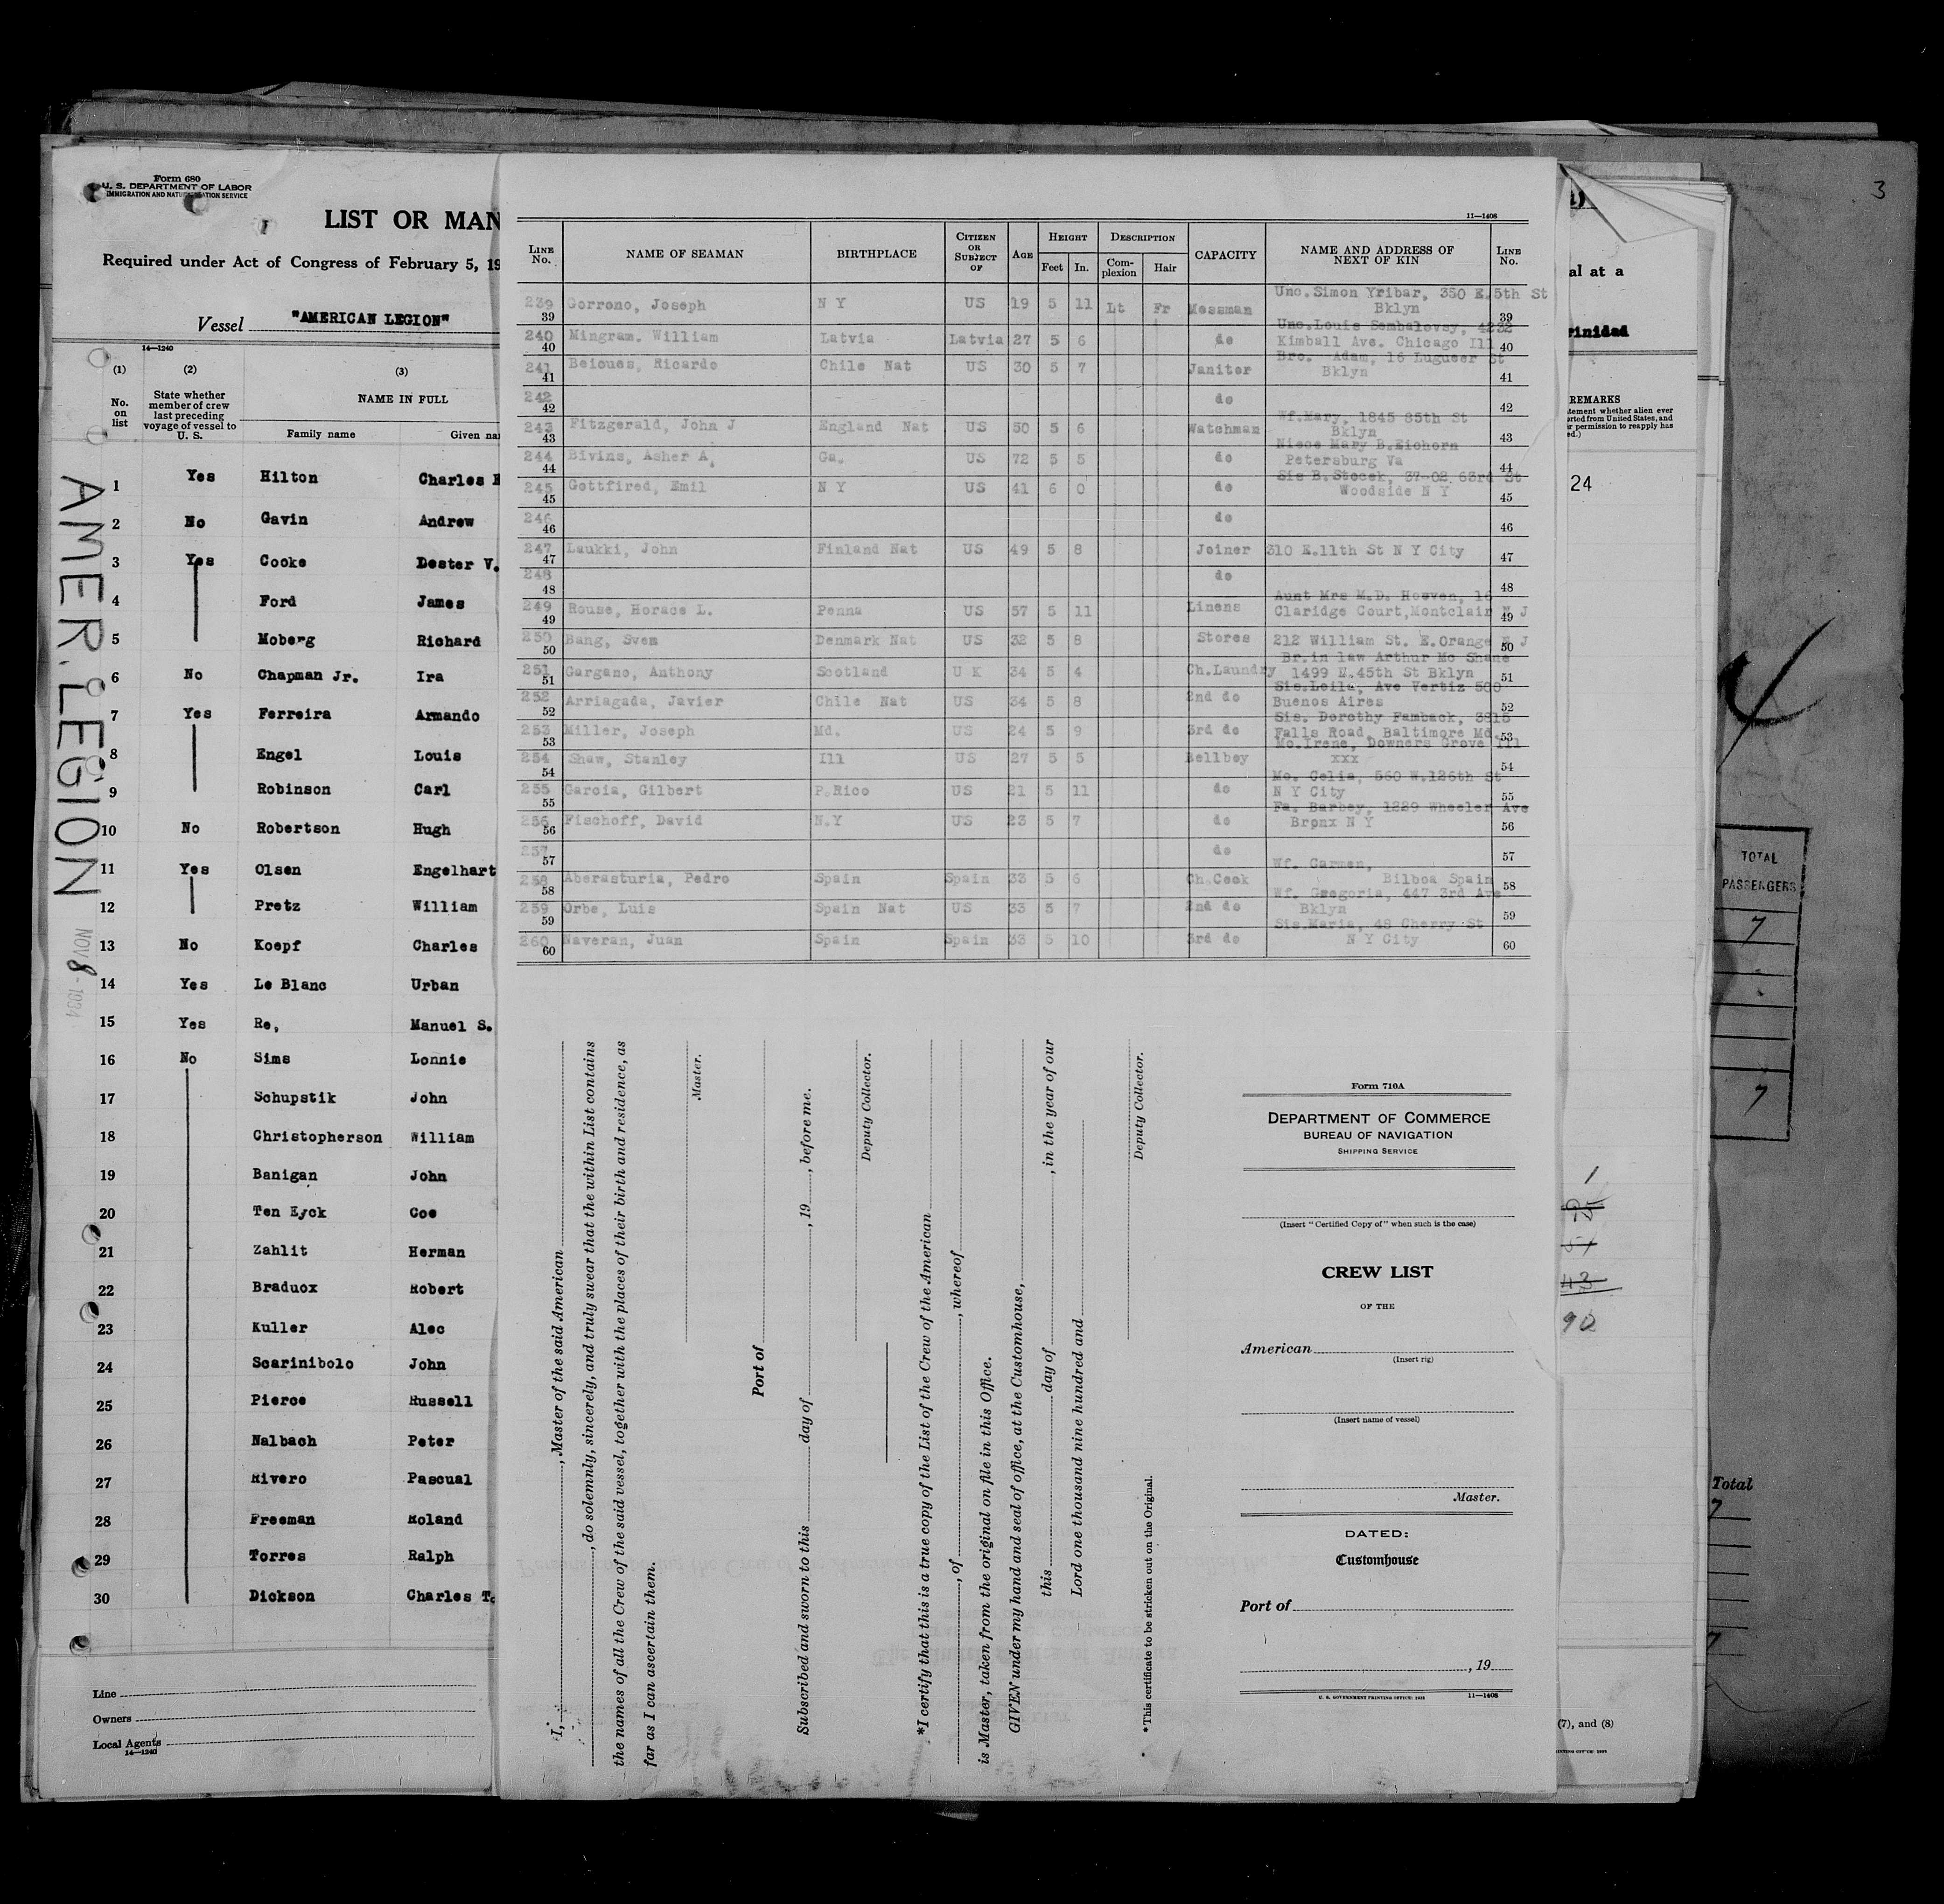 Form 680
U. S. DEPARTMENT OF LABOR
IMMIGRATION AND NATURALIZATION SERVICE
LIST OR MAN
Required under Act of Congress of February 5, 19
Vessel "AMERICAN LEGION"
14—1240
(1) (2) (3)
No. on list
State whether member of crew last preceding voyage of vessel to U. S.
NAME IN FULL
Family name Given na
1 Yes Hilton Charles
2 No Gavin Andrew
3 Yes Cooke Dester V.
4 Ford James
5 Moberg Richard
6 No Chapman Jr. Ira
7 Yes Ferreira Armando
8 Engel Louis
9 Robinson Carl
10 No Robertson Hugh
11 Yes Olsen Engelhart
12 Pretz William
13 No Koepf Charles
14 Yes Le Blanc Urban
15 Yes Re, Manuel S.
16 No Sims Lonnie
17 Schupstik John
18 Christopherson William
19 Banigan John
20 Ten Eyck Coe
21 Zahlit Herman
22 Braduox Robert
23 Kuller Alec
24 Scarinibolo John
25 Pierce Russell
26 Nalbach Peter
27 Rivero Pascual
28 Freeman Roland
29 Torres Ralph
30 Dickson Charles T.
Line
Owners
Local Agents
14—1240
AMER. LEGION
NOV 8 - 1934
11—1408
LINE No.
NAME OF SEAMAN
BIRTHPLACE
CITIZEN OR SUBJECT OF
AGE
HEIGHT
Feet In.
DESCRIPTION
Complexion Hair
CAPACITY
NAME AND ADDRESS OF NEXT OF KIN
LINE No.
Unc.Simon Yribar, 350 E.5th St
239 39 Gorrono, Joseph N Y US 19 5 11 Lt Fr Messman Bklyn 39
Unc.Louis Sembalovsy, 4232
240 40 Mingram. William Latvia Latvia 27 5 6 do Kimball Ave. Chicago Ill 40
Bro. Adam, 16 Lugueer St
241 41 Beioues, Ricardo Chile Nat US 30 5 7 Janitor Bklyn 41
242 42 do 42
Wf.Mary, 1845 85th St
243 43 Fitzgerald, John J England Nat US 50 5 6 Watchman Bklyn 43
Niece Mary B.Eichorn
244 44 Bivins, Asher A. Ga. US 72 5 5 do Petersburg Va 44
Sis B.Stocek, 37-02 63rd St
245 45 Gottfired, Emil N Y US 41 6 0 do Woodside N Y 45
246 46 do 46
247 47 Laukki, John Finland Nat US 49 5 8 Joiner 310 E.11th St N Y City 47
248 48 do 48
Aunt Mrs M.D. Hooven, 16
249 49 Rouse, Horace L. Penna US 57 5 11 Linens Claridge Court,Montclair N J 49
250 50 Bang, Sven Denmark Nat US 32 5 8 Stores 212 William St. E.Orange N J 50
Br.in law Arthur Mc Shane
251 51 Gargano, Anthony Scotland U K 34 5 4 Ch.Laundry 1499 E.45th St Bklyn 51
Sis.Leila, Ave Vertiz 500
252 52 Arriagada, Javier Chile Nat US 34 5 8 2nd do Buenos Aires 52
Sis. Dorothy Famback, 3815
253 53 Miller, Joseph Md. US 24 5 9 3rd do Falls Road, Baltimore Md 53
Mo.Irene, Downers Grove Ill
254 54 Shaw, Stanley Ill US 27 5 5 Bellboy xxx 54
Mo. Celia, 560 W.126th St
255 55 Garcia, Gilbert P.Rico US 21 5 11 do N Y City 55
Fa. Barbey, 1229 Wheeler Ave
256 56 Fischoff, David N.Y US 23 5 7 do Bronx N Y 56
257 57 do 57
Wf. Carmen,
258 58 Aberasturia, Pedro Spain Spain 33 5 6 Ch Cook Bilboa Spain 58
Wf. Gregoria, 447 3rd Ave
259 59 Orbe, Luis Spain Nat US 33 5 7 2nd do Bklyn 59
Sis.Maria, 48 Cherry St
260 60 Naveran, Juan Spain Spain 33 5 10 3rd do N Y City 60
I, , Master of the said American
, do solemnly, sincerely, and truly swear that the within List contains
the names of all the Crew of the said vessel, together with the places of their birth and residence, as
far as I can ascertain them.
Master.
Port of
Subscribed and sworn to this day of , 19 , before me.
Deputy Collector.
*I certify that this is a true copy of the List of the Crew of the American
, of , whereof
is Master, taken from the original on file in this Office.
GIVEN under my hand and seal of office, at the Customhouse,
this day of , in the year of our
Lord one thousand nine hundred and
Deputy Collector.
*This certificate to be stricken out on the Original.
Form 710A
DEPARTMENT OF COMMERCE
BUREAU OF NAVIGATION
SHIPPING SERVICE
(Insert "Certified Copy of" when such is the case)
CREW LIST
OF THE
American
(Insert rig)
(Insert name of vessel)
Master.
DATED:
Customhouse
Port of
, 19
U. S. GOVERNMENT PRINTING OFFICE: 11—1408
al at a
rinidad
REMARKS
24
90
(7), and (8)
3
TOTAL
PASSENGERS
7
7
Total
7